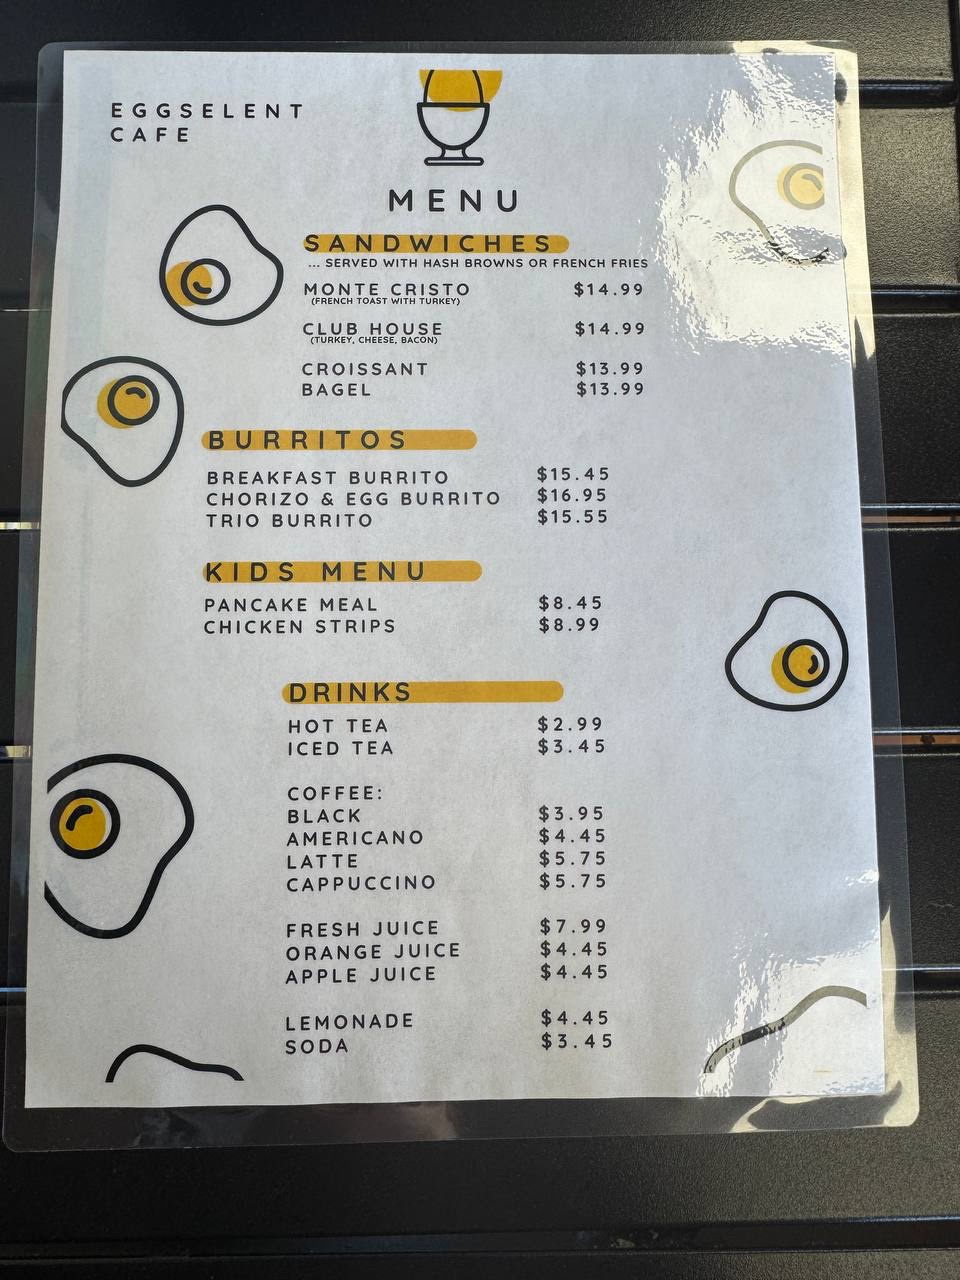 EGGSELENT
CAFE
MENU
SANDWICHES
... SERVED WITH HASH BROWNS OR FRENCH FRIES
MONTE CRISTO $14.99
(FRENCH TOAST WITH TURKEY)
CLUB HOUSE $14.99
(TURKEY, CHEESE, BACON)
CROISSANT $13.99
BAGEL $13.99
BURRITOS
BREAKFAST BURRITO $15.45
CHORIZO & EGG BURRITO $16.95
TRIO BURRITO $15.55
KIDS MENU
PANCAKE MEAL $8.45
CHICKEN STRIPS $8.99
DRINKS
HOT TEA $2.99
ICED TEA $3.45
COFFEE:
BLACK $3.95
AMERICANO $4.45
LATTE $5.75
CAPPUCCINO $5.75
FRESH JUICE $7.99
ORANGE JUICE $4.45
APPLE JUICE $4.45
LEMONADE $4.45
SODA $3.45